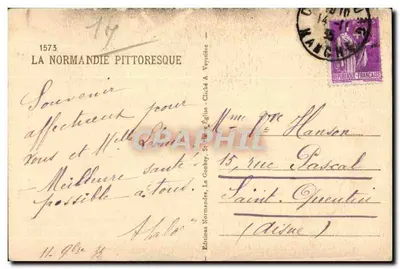 17
1573
LA NORMANDIE PITTORESQUE
Souvenir
affectueux pour
vous et Melle
Meilleure santé
possible à tous.
Mme Vve Hanson
15, rue Pascal
Saint-Quentin
(Aisne)
Editions Normandes, Le Goubey, St - Eglise - Cliché A Veyssière
MANCHE
CPARAMA